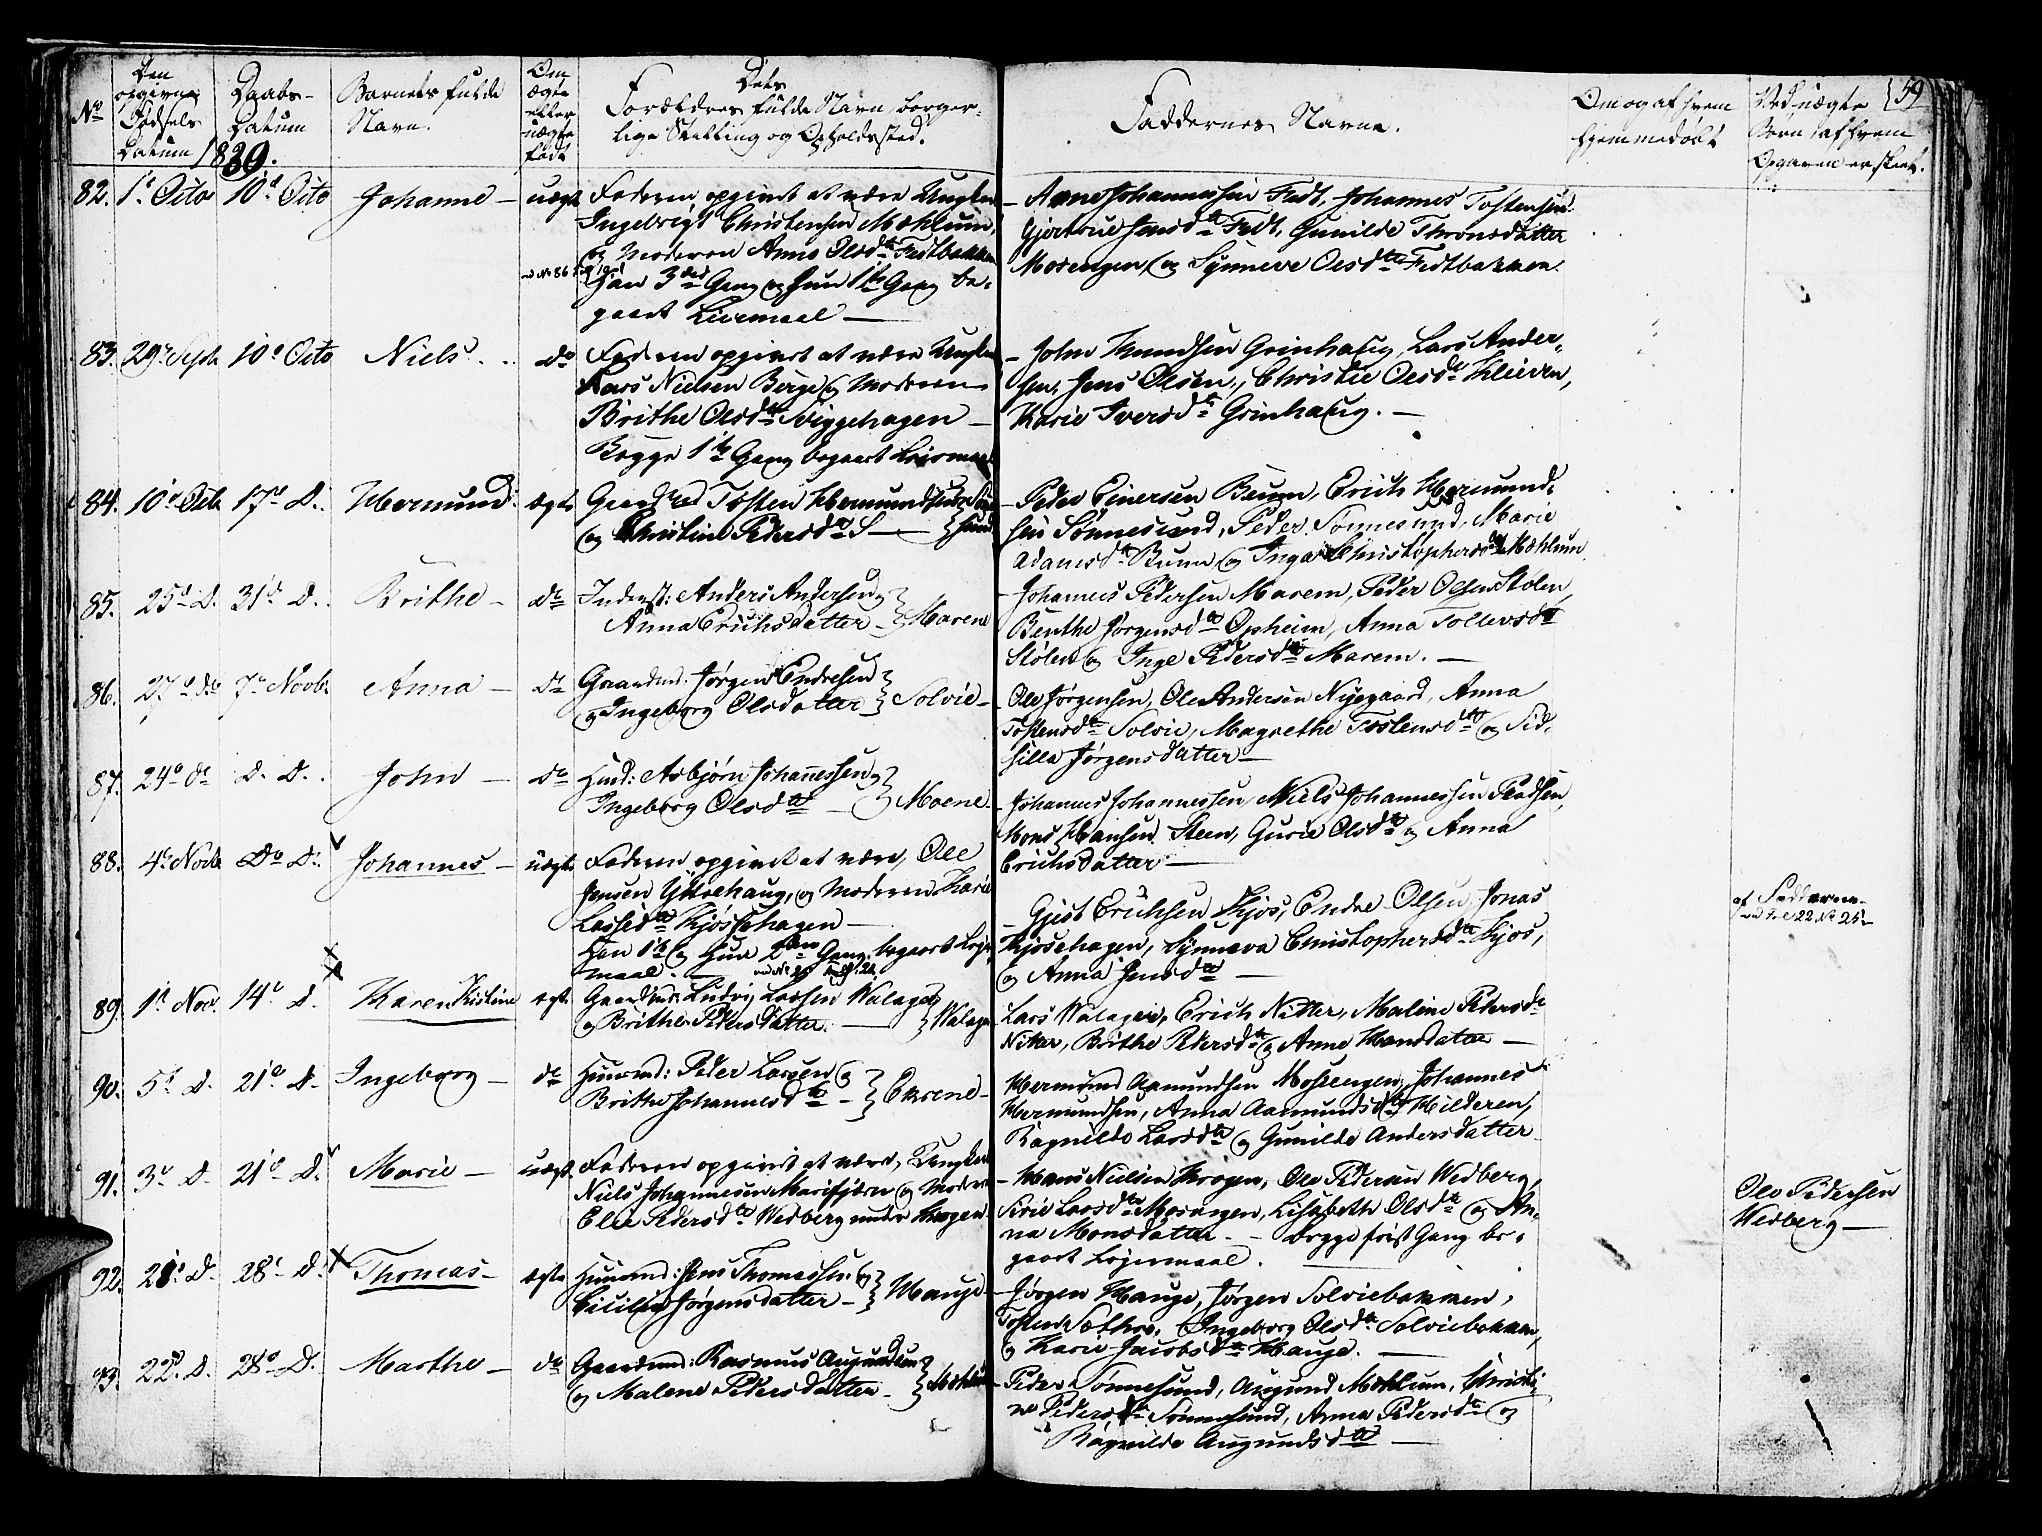 59
No
Den opgivne Fødsels Datum
Daabs-Datum
Barnets fulde Navn.
Om ægte eller uægte født
Dets Forældres fulde Navn borgerlige Stilling og Opholdssted.
Faddernes Navne.
Om og af hvem hjemmedøbt
Ved uægte Børn af hvem Opgaven er skeet.
1839.
82. 1d Octo 10d Octo Johanne – uægt. Faderen opgivet at være Ungkn
Ingebrigt Christensen Mæhlum,
og Moderen Anne Olsdtr Fedtbakken
Han 3die Gang og hun 1te Gang be-
gaaet Leiermaal –
– Arne Johannessen Fedt, Johannes Tostensen
Gjertrue Jensdtr Fedt, Gunilde Thronsdatter
Morengen, og Synneve Olsdtr Fedtbakken.
83. 29d Septb 10d Octo Niels do Faderen opgivet at være Ungkn
Lars Nielsen Berge og Moderen
Brithe Olsdtr Sviggehagen –
Begge 1te Gang begaaet Leiermaal
– John Knudsen Grinhaug, Lars Ander-
sen, Jens Olsen, Christie Olsdtr Kleiven,
Karie Iversdtr Grinhaug. –
84. 10d Octb 17d D. Hermund ægte Gaardmd Tosten Hermundsen Søn-
og Christine Pedersdtr S – } sund
– Peder Einersen Bruun, Erich Hermund-
sen Sønnesund, Peder Sønnesund, Marie
Adamsdtr Bruun og Inga Christophersdtr Mæhlum
85. 25d D. 31d D. Brithe – do Inderst: Anders Andersen og
Anna Erichsdatter – } Marene
– Johannes Pedersen Marem, Peder Olsen Stølen,
Benthe Jorgensdtr Opheim, Anna Tollevsdtr
Stølen og Inge Pedersdtr Marem. –
86. 27d do 7d Novb Anna – do Gaardmd: Jørgen Endresen
og Ingeborg Olsdatter } Solvie –
– Ole Jørgensen, Ole Andersen Nygaard, Anna
Tostensdtr Solvie, Magrethe Tostensdtr og Sid-
silla Jørgensdatter –
87. 24d do D. D. John – do Huusmd: Asbjørn Johannessen og
Ingeborg Olsdtr – } Moene
– Johannes Johannessen, Niels Johannessen
Mons Hansen Steen, Gurie Olsdtr og Anna
Erichsdatter –
88. 4d Novb Do D. Johannes – uægte Faderen opgivet at være, Ole
Jensen Yttrehaug, og Moderen Karie
Lassedtr Kjøsehagen –
Han 1te og Hun 2den Gang begaaet Leier-
maal. –
– Gjest Erichsen Kjøs, Endre Olsen, Jonas
Kjøsehagen, Synneva Christophersdtr Kjøs,
og Anna Jensdtr –
af Fadderne –
89. 1d Nov. 14d D. Karen Kristine ægte Gaardmd: Ludvig Larsen Walage
og Brithe Pedersdatter. – } Walage
Lars Walagei, Erich Nitter, Malene Pedersdtr
Nitter, Brithe Pedersdtr og Anne Hansdatter –
90. 5d D. 21d D. Ingeborg – do Huusmd: Peder Larsen og
Brithe Johannesdtr – } Ekrene –
Hermund Aamundsen Mossengen, Johannes
Hermundsen, Anna Aamundsdtr Hilderen,
Ragnilde Larsdtr og Gunilde Andersdatter
91. 3d D. 21d D. Marie – uægte Faderen opgivet at være, Ungkarl
Niels Johannesen Marifjøren og Moderen
Else Pedersdtr Wedberg under Krogen
– Hans Nielsen Krogen, Ole Pedersen Wedberg,
Sirie Larsdtr Morengen, Lisabeth Olsdtr og An-
na Monsdatter. – Begge første Gang be-
gaaet Leiermaal.
Ole Pedersen
Wedberg –
92. 21d D. 28d D. Thomas – ægte Huusmd: Jens Thomassen og
Cicilie Jørgensdatter – } Hauge
– Jørgen Hauge, Jørgen Solviebakken,
Tosten Sathre, Ingeborg Olsdtr Solviebakken,
og Karie Jacobsdtr Hauge. –
93. 22d D. 28d D. Marthe – do Gaardmd: Rasmus Augundsen
og Malene Pedersdatter – } Mæhlum
– Peder Sønnesund, Augund Mæhlum, Christi-
ne Pedersdtr Sønnesund, Anna Pedersdtr og
Ragnilde Augundsdtr –